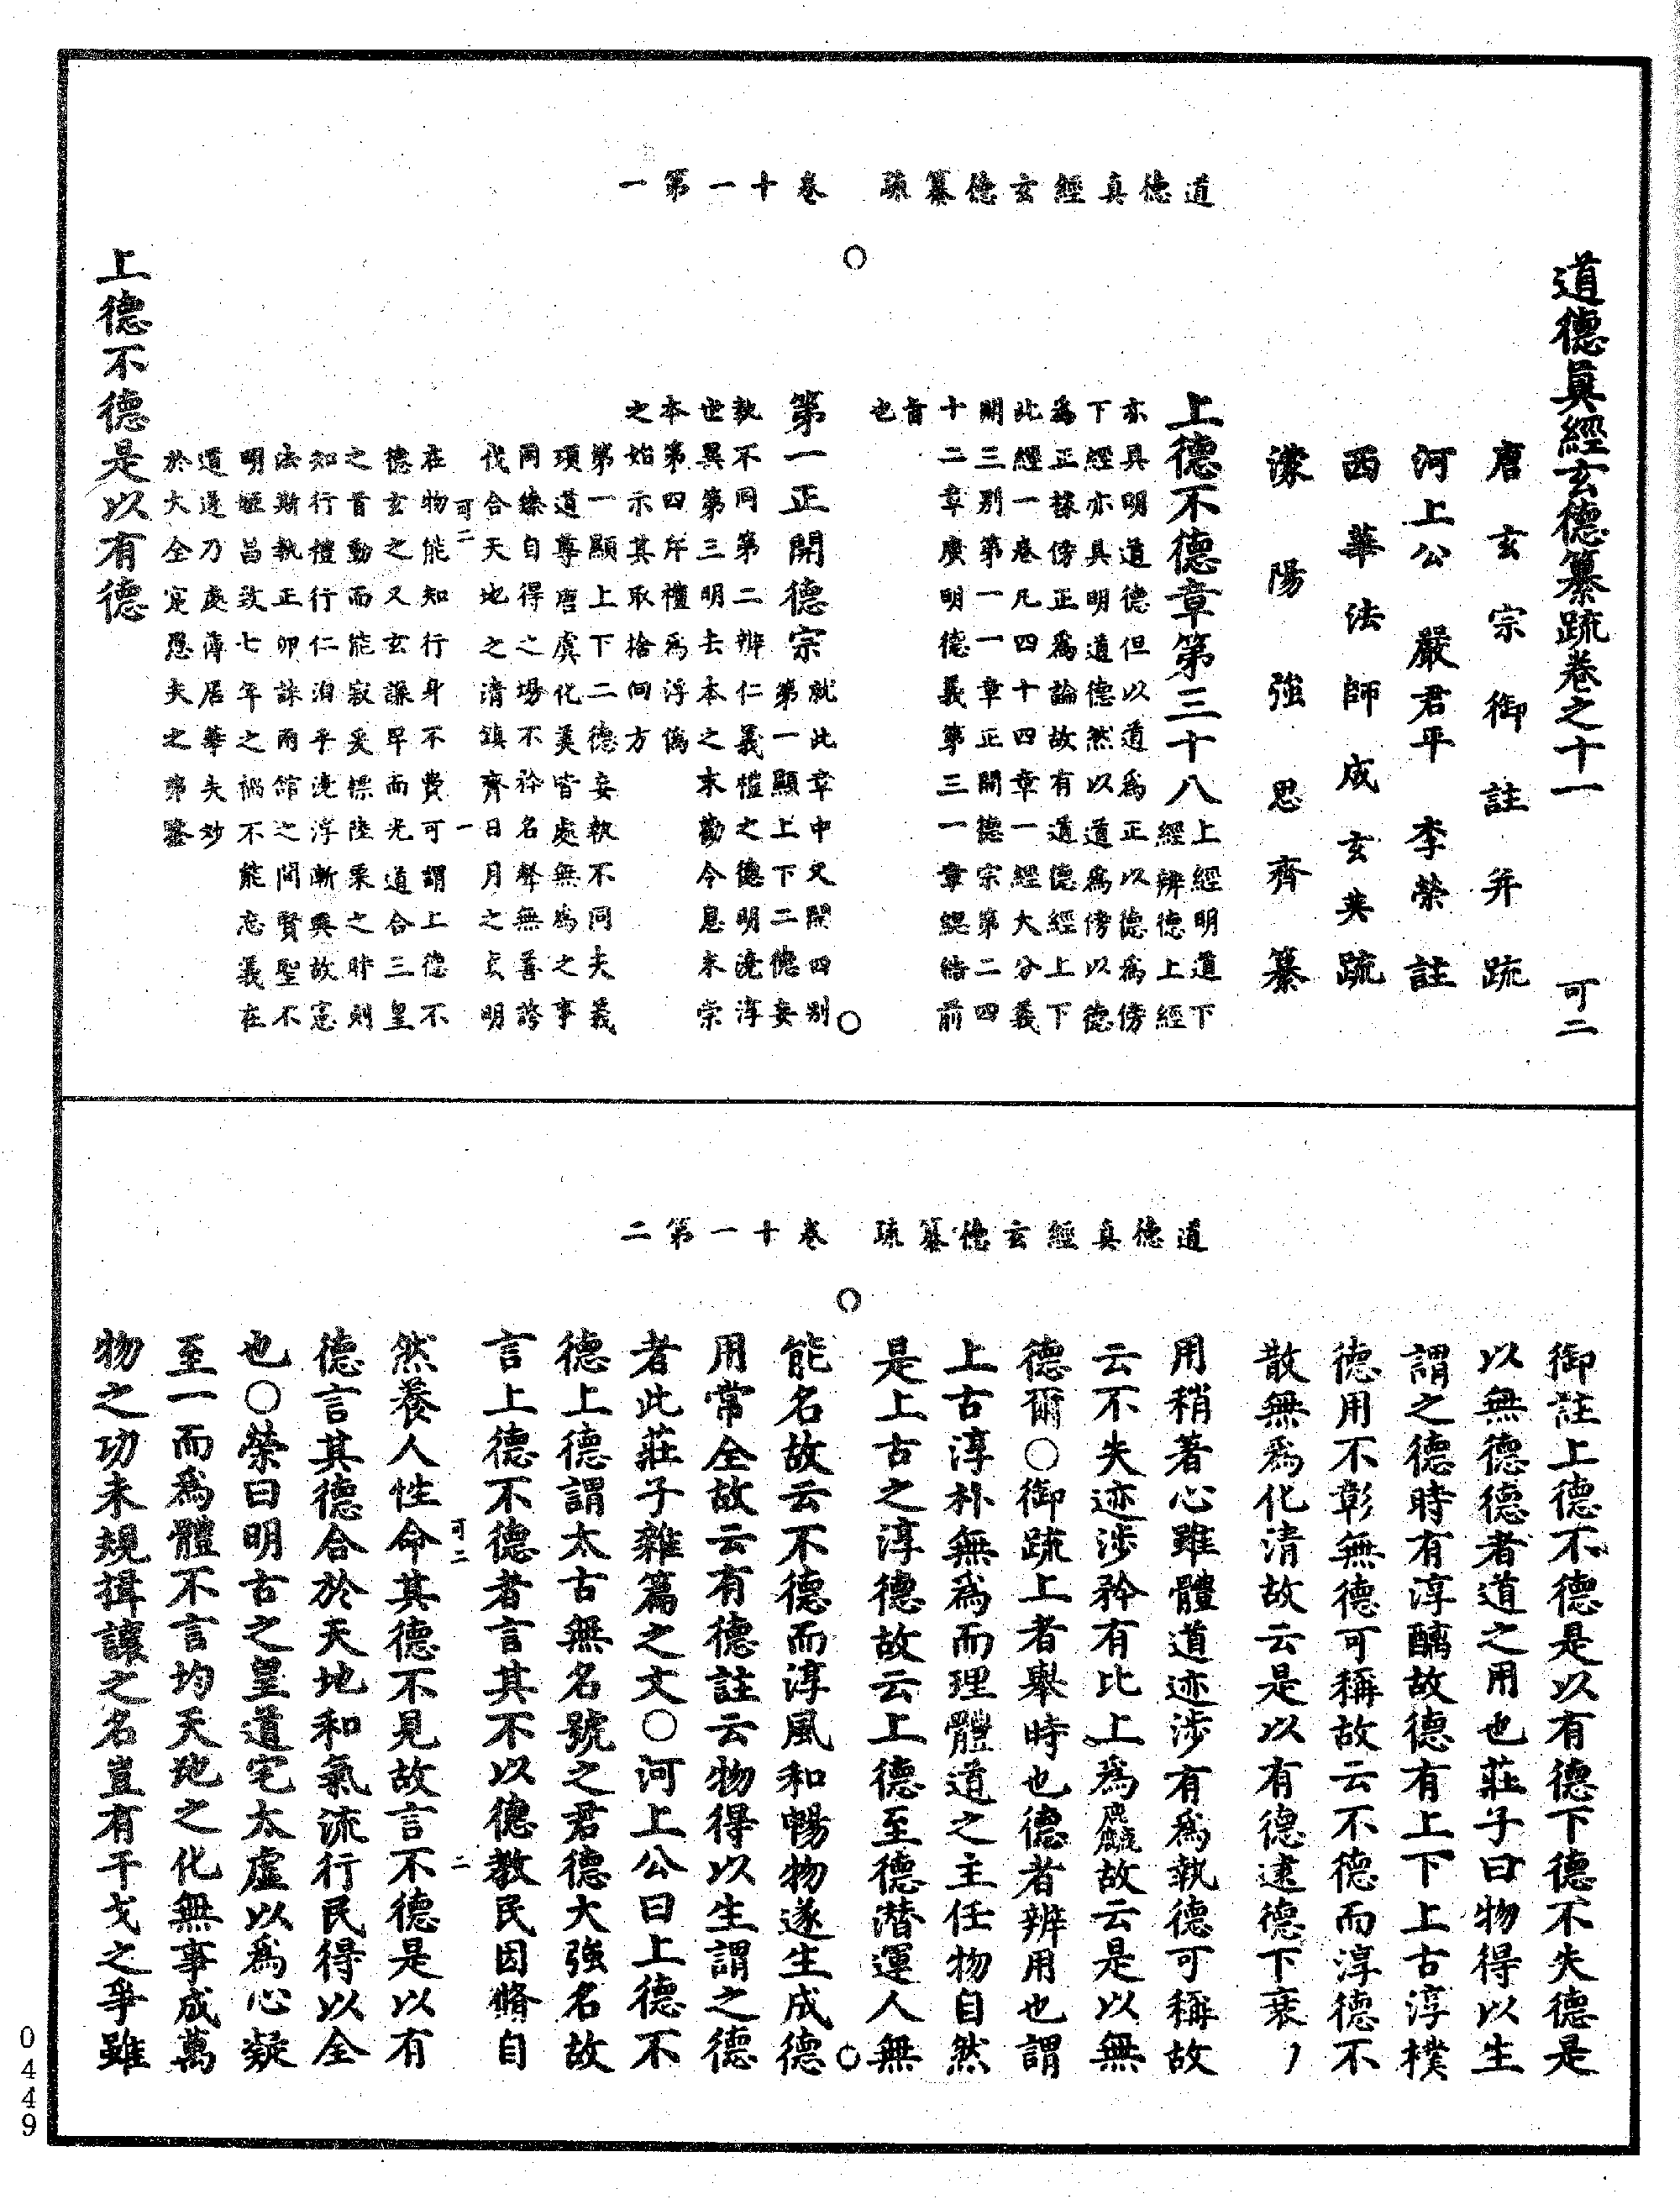 道德真經玄德纂疏　卷十一第一
道德眞經玄德纂疏卷之十一　可二
唐玄宗御註幷疏
河上公　嚴君平　李榮註
西華法師成玄英疏
濛陽強思齊纂
上德不德章第三十八
上經明道下
經辨德上經
亦具明道德但以道爲正以德爲傍
下經亦具明道德然以道爲傍以德
爲正據傍正爲論故有道德經上下
此經一卷凡四十四章一經大分義
開三別第一一章正開德宗第二四
十二章廣明德義第三一章總結前
旨
也
第一正開德宗
就此章中文開四別
第一顯上下二德妄
執不同第二辨仁義禮之德明澆淳
世異第三明去本之末勸令息末崇
本第四斥禮爲浮僞
之始示其取捨向方
第一顯上下二德妄執不同夫義
頊道尊唐虞化美皆處無爲之事
同臻自得之場不矜名聲無善誇
伐合天地之清鎮齊日月之貞明
可二　一
在物能知行身不費可謂上德不
德玄之又玄謙卑而光道合三皇
之首動而能寂爰標陸栗之時則
知行禮行仁洎乎澆淳漸興故憲
法斯執正卯誅兩觀之間賢聖不
明姬昌汶七年之禍不能忘義在
道邊乃處薄居華失妙
於大全寔愚夫之弊鑒
上德不德是以有德
道德真經玄德纂疏　卷十一第二
御註上德不德是以有德下德不失德是
以無德德者道之用也莊子曰物得以生
謂之德時有淳醨故德有上下上古淳樸
德用不彰無德可稱故云不德而淳德不
散無爲化清故云是以有德逮德下衰功
用稍著心雖體道迹涉有爲執德可稱故
云不失迹涉矜有比上爲麤故云是以無
德爾○御疏上者舉時也德者辨用也謂
上古淳朴無爲而理體道之主任物自然
是上古之淳德故云上德至德潛運人無
能名故云不德而淳風和暢物遂生成德
用常全故云有德註云物得以生謂之德
者此莊子雜篇之文○河上公曰上德不
德上德謂太古無名號之君德大強名故
言上德不德者言其不以德教民因脩自
可二　二
然養人性命其德不見故言不德是以有
德言其德合於天地和氣流行民得以全
也○榮曰明古之皇道宅太虛以爲心凝
至一而爲體不言均天地之化無事成萬
物之功未規揖讓之名豈有干戈之爭雖
0449